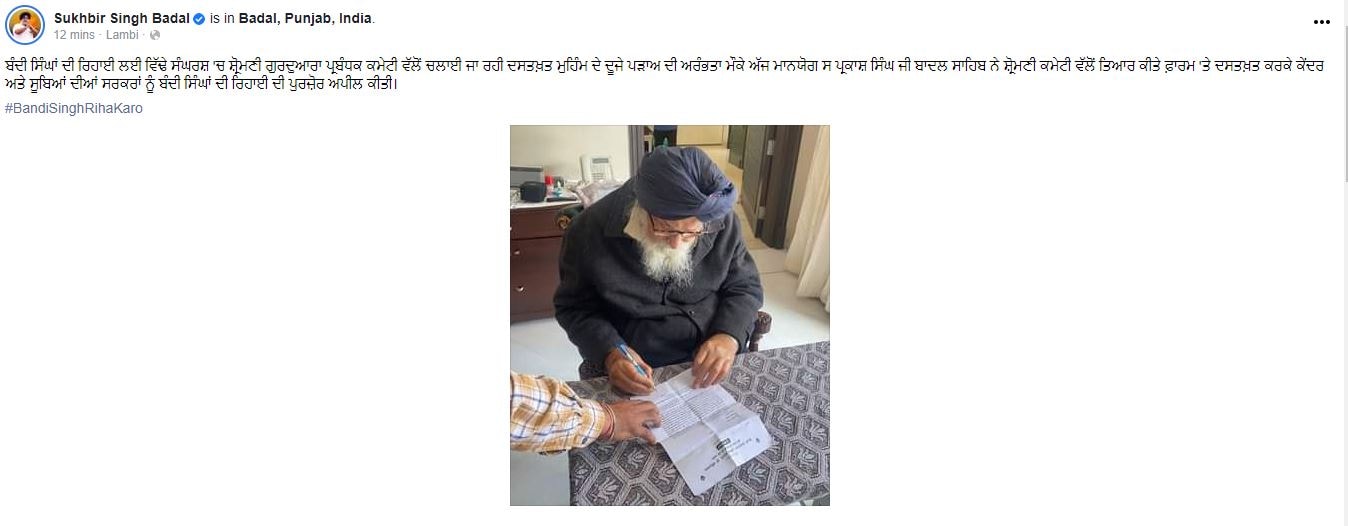 Sukhbir Singh Badal is in Badal, Punjab, India.
12 mins · Lambi ·
ਬੰਦੀ ਸਿੰਘਾਂ ਦੀ ਰਿਹਾਈ ਲਈ ਵਿੱਢੇ ਸੰਘਰਸ਼ 'ਚ ਸ਼੍ਰੋਮਣੀ ਗੁਰਦੁਆਰਾ ਪ੍ਰਬੰਧਕ ਕਮੇਟੀ ਵੱਲੋਂ ਚਲਾਈ ਜਾ ਰਹੀ ਦਸਤਖ਼ਤ ਮੁਹਿੰਮ ਦੇ ਦੂਜੇ ਪੜਾਅ ਦੀ ਅਰੰਭਤਾ ਮੌਕੇ ਅੱਜ ਮਾਨਯੋਗ ਸ ਪ੍ਰਕਾਸ਼ ਸਿੰਘ ਜੀ ਬਾਦਲ ਸਾਹਿਬ ਨੇ ਸ਼੍ਰੋਮਣੀ ਕਮੇਟੀ ਵੱਲੋਂ ਤਿਆਰ ਕੀਤੇ ਫ਼ਾਰਮ 'ਤੇ ਦਸਤਖ਼ਤ ਕਰਕੇ ਕੇਂਦਰ
ਅਤੇ ਸੂਬਿਆਂ ਦੀਆਂ ਸਰਕਰਾਂ ਨੂੰ ਬੰਦੀ ਸਿੰਘਾਂ ਦੀ ਰਿਹਾਈ ਦੀ ਪੁਰਜ਼ੋਰ ਅਪੀਲ ਕੀਤੀ।
#BandiSinghRihaKaro